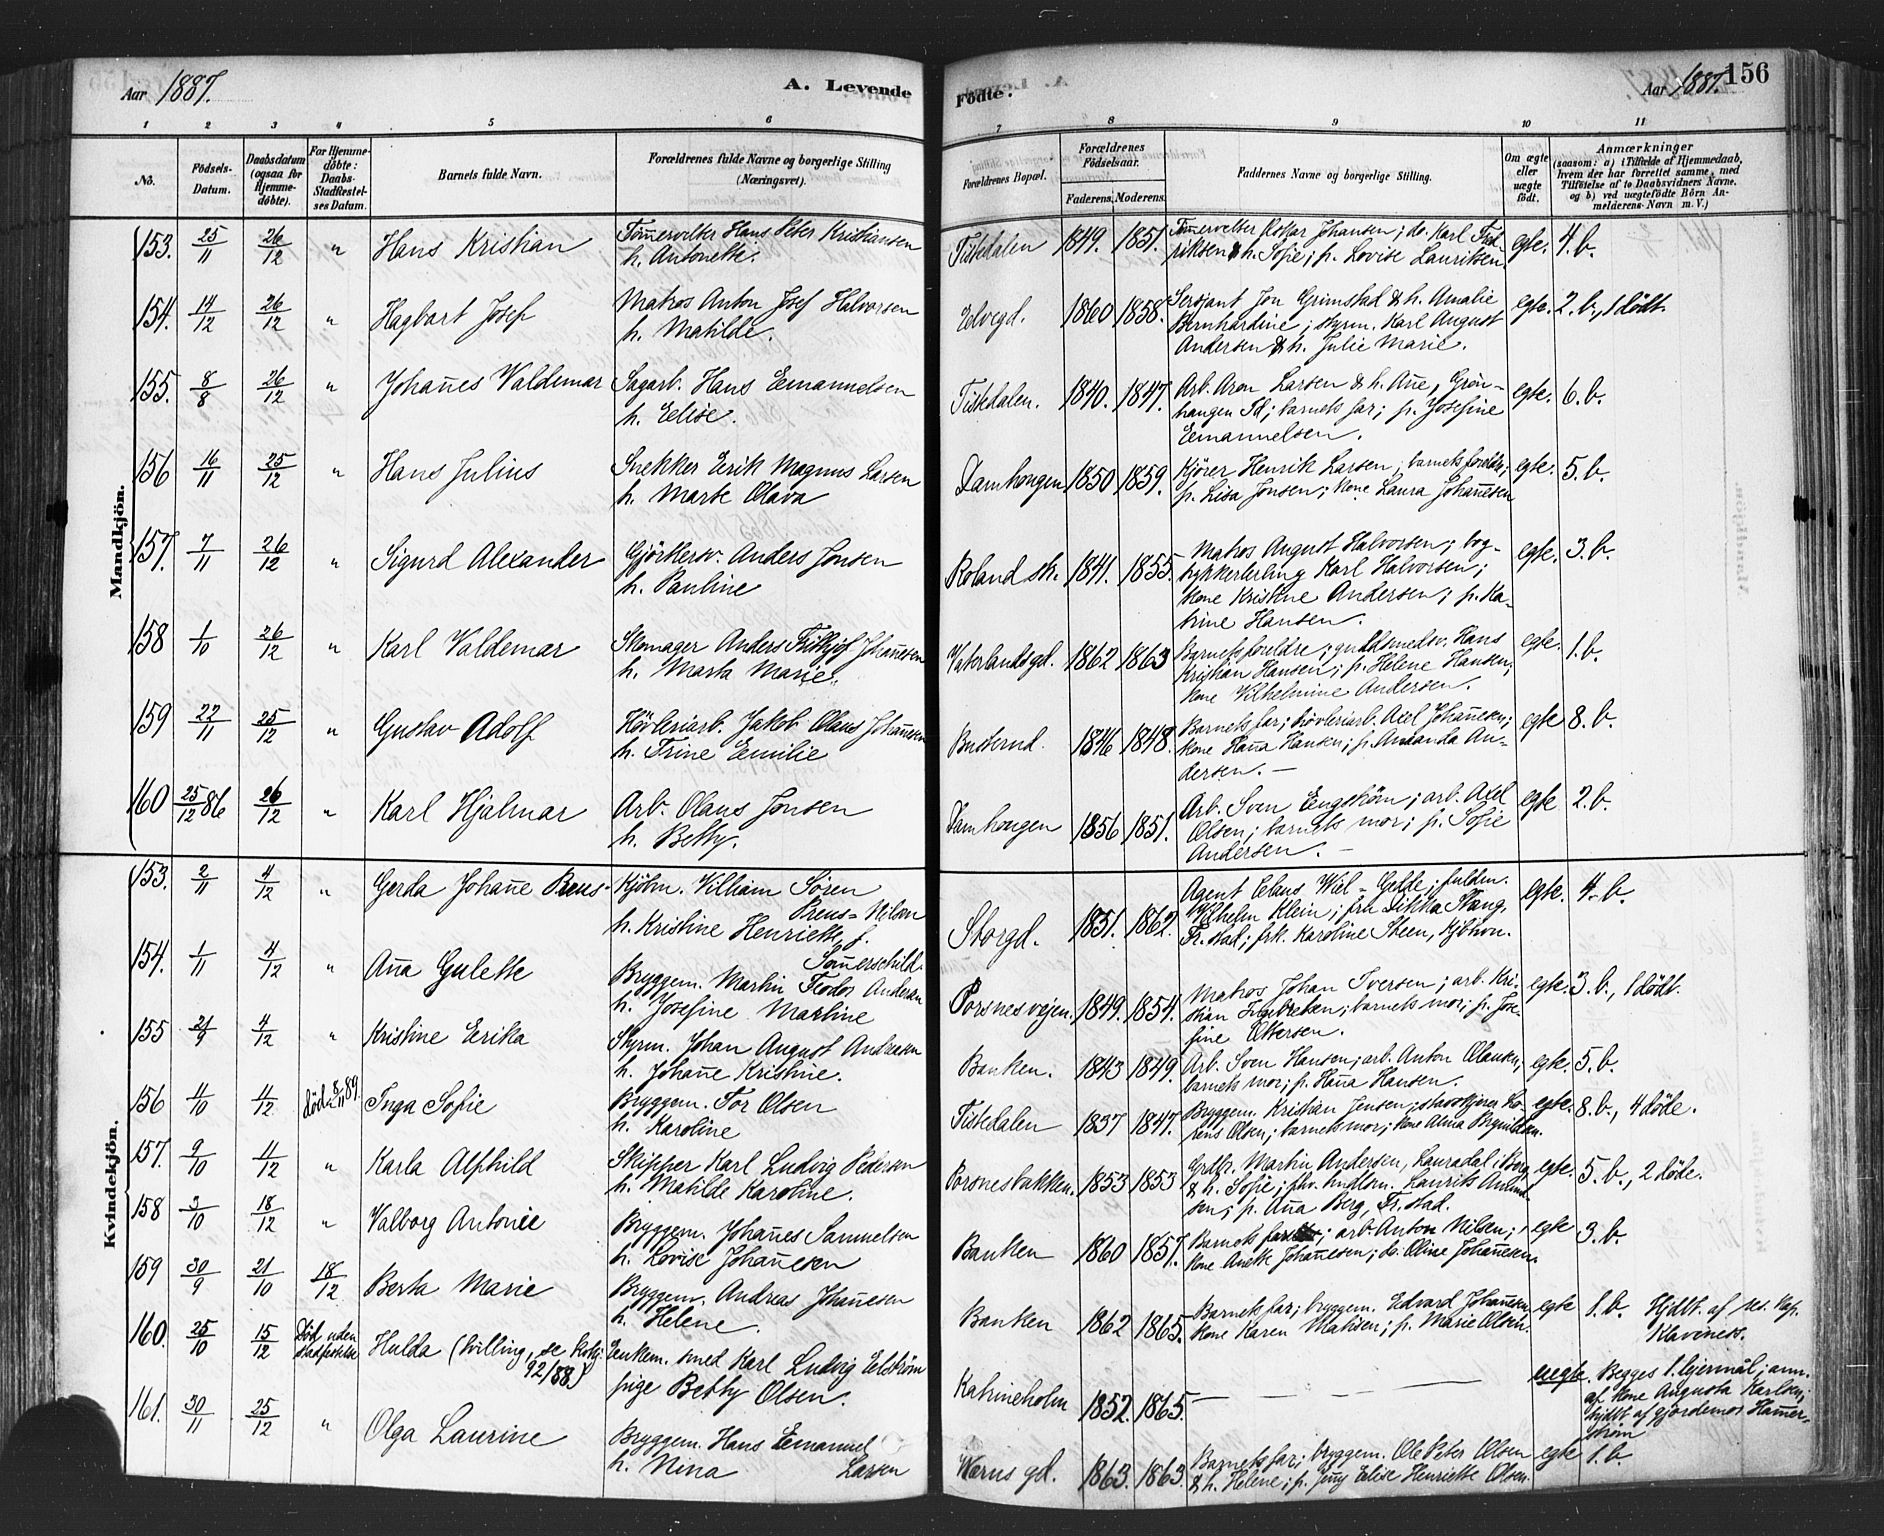 Aar 1887. A. Levende
Födte. Aar 1887. 156
1 2 3 4 5 6 7 8 9 10 11
No. Födsels-Datum. Daabsdatum (ogsaa for Hjemme-döbte). For Hjemme-döbte: Daabs-Stadfæstel-ses Datum. Barnets fulde Navn. Forældrenes fulde Navne og borgerlige Stilling (Næringsvei). Forældrenes Bopæl. Forældrenes Födselsaar. Faderens. Moderens. Faddernes Navne og borgerlige Stilling. Om ægte eller uægte födt. Anmærkninger (saasom: a) i Tilfælde af Hjemmedaab, hvem der har forrettet samme, med Tilföielse af to Daabsvidners Navne, og b) ved uægtefödte Börn An-melderens Navn m. V.)
Mandkjön.
153. 25/11 26/12 " Hans Kristian Tømervelter Hans Peter Kristiansen
h. Antonette. Tistedalen 1849. 1851. Tømervelter Oskar Johansen; do. Karl Fred-
riksen & h. Sofie; p. Lovise Lauritsen. egte. 4. b.
154. 14/12 26/12 " Hagbart Josef Matros Anton Josef Halvorsen
h. Matilde. Elvegd. 1860 1858. Sersjant Jon Grimstad & h. Amalie
Bernhardine; styrm. Karl August
Andersen & h. Julie Marie. egte. 2. b., 1 dødt.
155. 8/8 26/12 " Johan̄es Valdemar Sagarb. Hans Emanuelsen
h. Elise. Tistedalen. 1840. 1847. Arb. Aron Larsen & h. An̄e, Grøn-
haugen Id; barnets far; p. Josefine
Emanuelsen. egte. 6. b.
156 16/11 25/12 " Hans Julius Snekker Erik Magnus Larsen
h. Marte Olava Damhaugen 1850 1859. Kjører Henrik Larsen; barnets foreldre;
p. Lisa Jonsen; kone Laura Johan̄esen egte. 5. b.
157. 7/11 26/12 " Sigurd Alexander Gjörtlersv. Anders Jonsen
h. Pauline Roland sk. 1841. 1855. Matros August Halvorsen; bog-
trykkerlerling Karl Halvorsen;
kone Kristine Andersen; p. Ka-
trine Hansen. egte. 3. b.
158 1/10 26/12 " Karl Valdemar Skomager Anders Fritjof Johan̄esen
h. Marta Marie. Vaterlandsgd. 1862. 1863 Barnets foreldre; guldsmedsv. Hans
Kristian Hansen; p. Helene Hansen;
kone Vilhelmine Andersen. egte. 1. b.
159 22/11 25/12 " Gustav Adolf Høvleriarb. Jakob Olaus Johan̄esen
h. Trine Emilie Busterud. 1846 1848. Barnets far; høvleriarb. Axel Johan̄esen;
kone Han̄a Hansen; p. Amanda An-
dersen. egte 8. b.
160 25/12 86 26/12 " Karl Hjalmar Arb. Olaus Jonsen
h. Betty. Damhaugen 1856 1851. Arb. Sven Engström; arb. Axel
Olsen; barnets mor; p. Sofie
Andersen. egte 2. b.
Kvindekjön.
153. 2/11 4/12 " Gerda Johan̄e Preus- Kjøbm. Vilhiam Søren
Preus-Nilsen
h. Kristine Henriette f.
Som̄erschild. Storgd. 1851. 1862. Agent Claus Wiel-Gedde; fuldm.
Vilhelm Klein; frk Dikka Stang,
Fr.stad; frk. Karoline Steen, Kjøbhvn. egte. 4. b.
154. 1/11 4/12 " An̄a Gulette Bryggem. Martin Teodor Andersen
h. Josefine Martine Porsnesvejen. 1849. 1854. Matros Johan Iversen; arb. Kri-
stian; barnets mor; p. Jose-
fine Ottersen. egte. 3. b., 1 dødt.
155 21/9 4/12 " Kristine Erika Styrm. Johan August Andreasen
h. Johan̄e Kristine. Banken. 1843 1849. Arb. Sven Hansen; arb. Anton Olausen;
barnets mor; p. Han̄a Hansen. egte. 5. b.
156 4/10 4/12 død 8/11 89. Inga Sofie Bryggem. Tor Olsen
h. Karoline Tistedalen 1837 1847. Bryggem. Kristian Jensen; Lo-
rens Olsen; barnets mor; kone Alma egte. 8. b., 4 døde.
157. 9/10 4/12 " Karla Alfhild Skipper Karl Ludvig Pedersen
h. Matilde Karoline. Porsnesbakken. 1853 1853 Grdbr. Martin Andersen, i Borg
& h. Sofie; Henrik
sen; p. An̄a Berg, Fr.stad. egte. 5. b., 2 døde.
158 3/10 18/12 " Valborg Antonie Bryggem. Johan̄es Samuelsen
h. Lovise Johan̄esen Banken 1860 1857. Barnets; arb. Anton Nilsen;
kone Anette Johan̄esen; do. Oline Johan̄esen. egte 3. b.
159 30/9 21/10 18/12 Berta Marie Bryggem. Andreas Johan̄esen
h. Helene. Banken 1862 1865. Barnets far; bryggem. Edvard Johan̄esen
kone Karen Matisen; p. Marie Olsen. egte 1. b. Hjdbt. af res. kap.
Klaviness.
160. 25/10 15/12 Død uden stadfestelse Hulda (tvilling, se
92/88) Enkem. smed Karl Ludvig Elström
pige Betty Olsen. Katrineholm 1852. 1865. — — — — uegte. Begges 1. lejermål; anm.
af kone Augusta Karlsen;
hjdbt af gjordemor Ham̄er-
strøm
161. 30/11 25/12 " Olga Laurine Bryggem. Hans Emanuel
Larsen
h. Nina Værns gd. 1863. 1863. Barnets far; bryggem. Ole Peter Olsen
& h. Helene; p. Jen̄y Elise Henriette Olsen. egte 1. b.